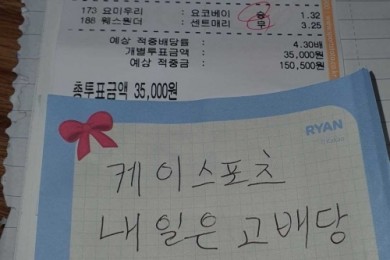 173 요미우리 : 요코베이 승 1.32
188 웨스원더 : 센트매리 무 3.25
예상 적중배당률 : 4.30배
개별투표금액 : 35,000원
예상 적중금 : 150,500원
총투표금액 35,000원
RYAN
케이스포츠
내일은 고배당